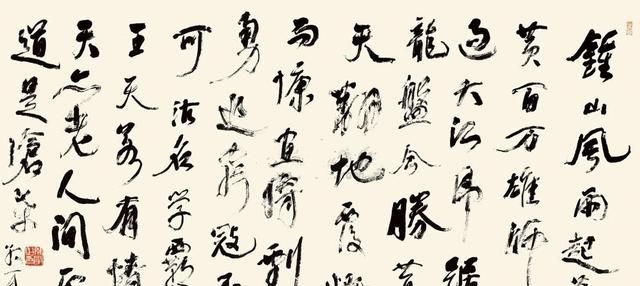 鍾山風雨起蒼
黄百万雄師
過大江虎踞
龍盤今勝昔
天翻地覆慨
而慷宜將剩
勇追窮寇不
可沽名學霸
王天若有情
天亦老人间正
道是滄桑